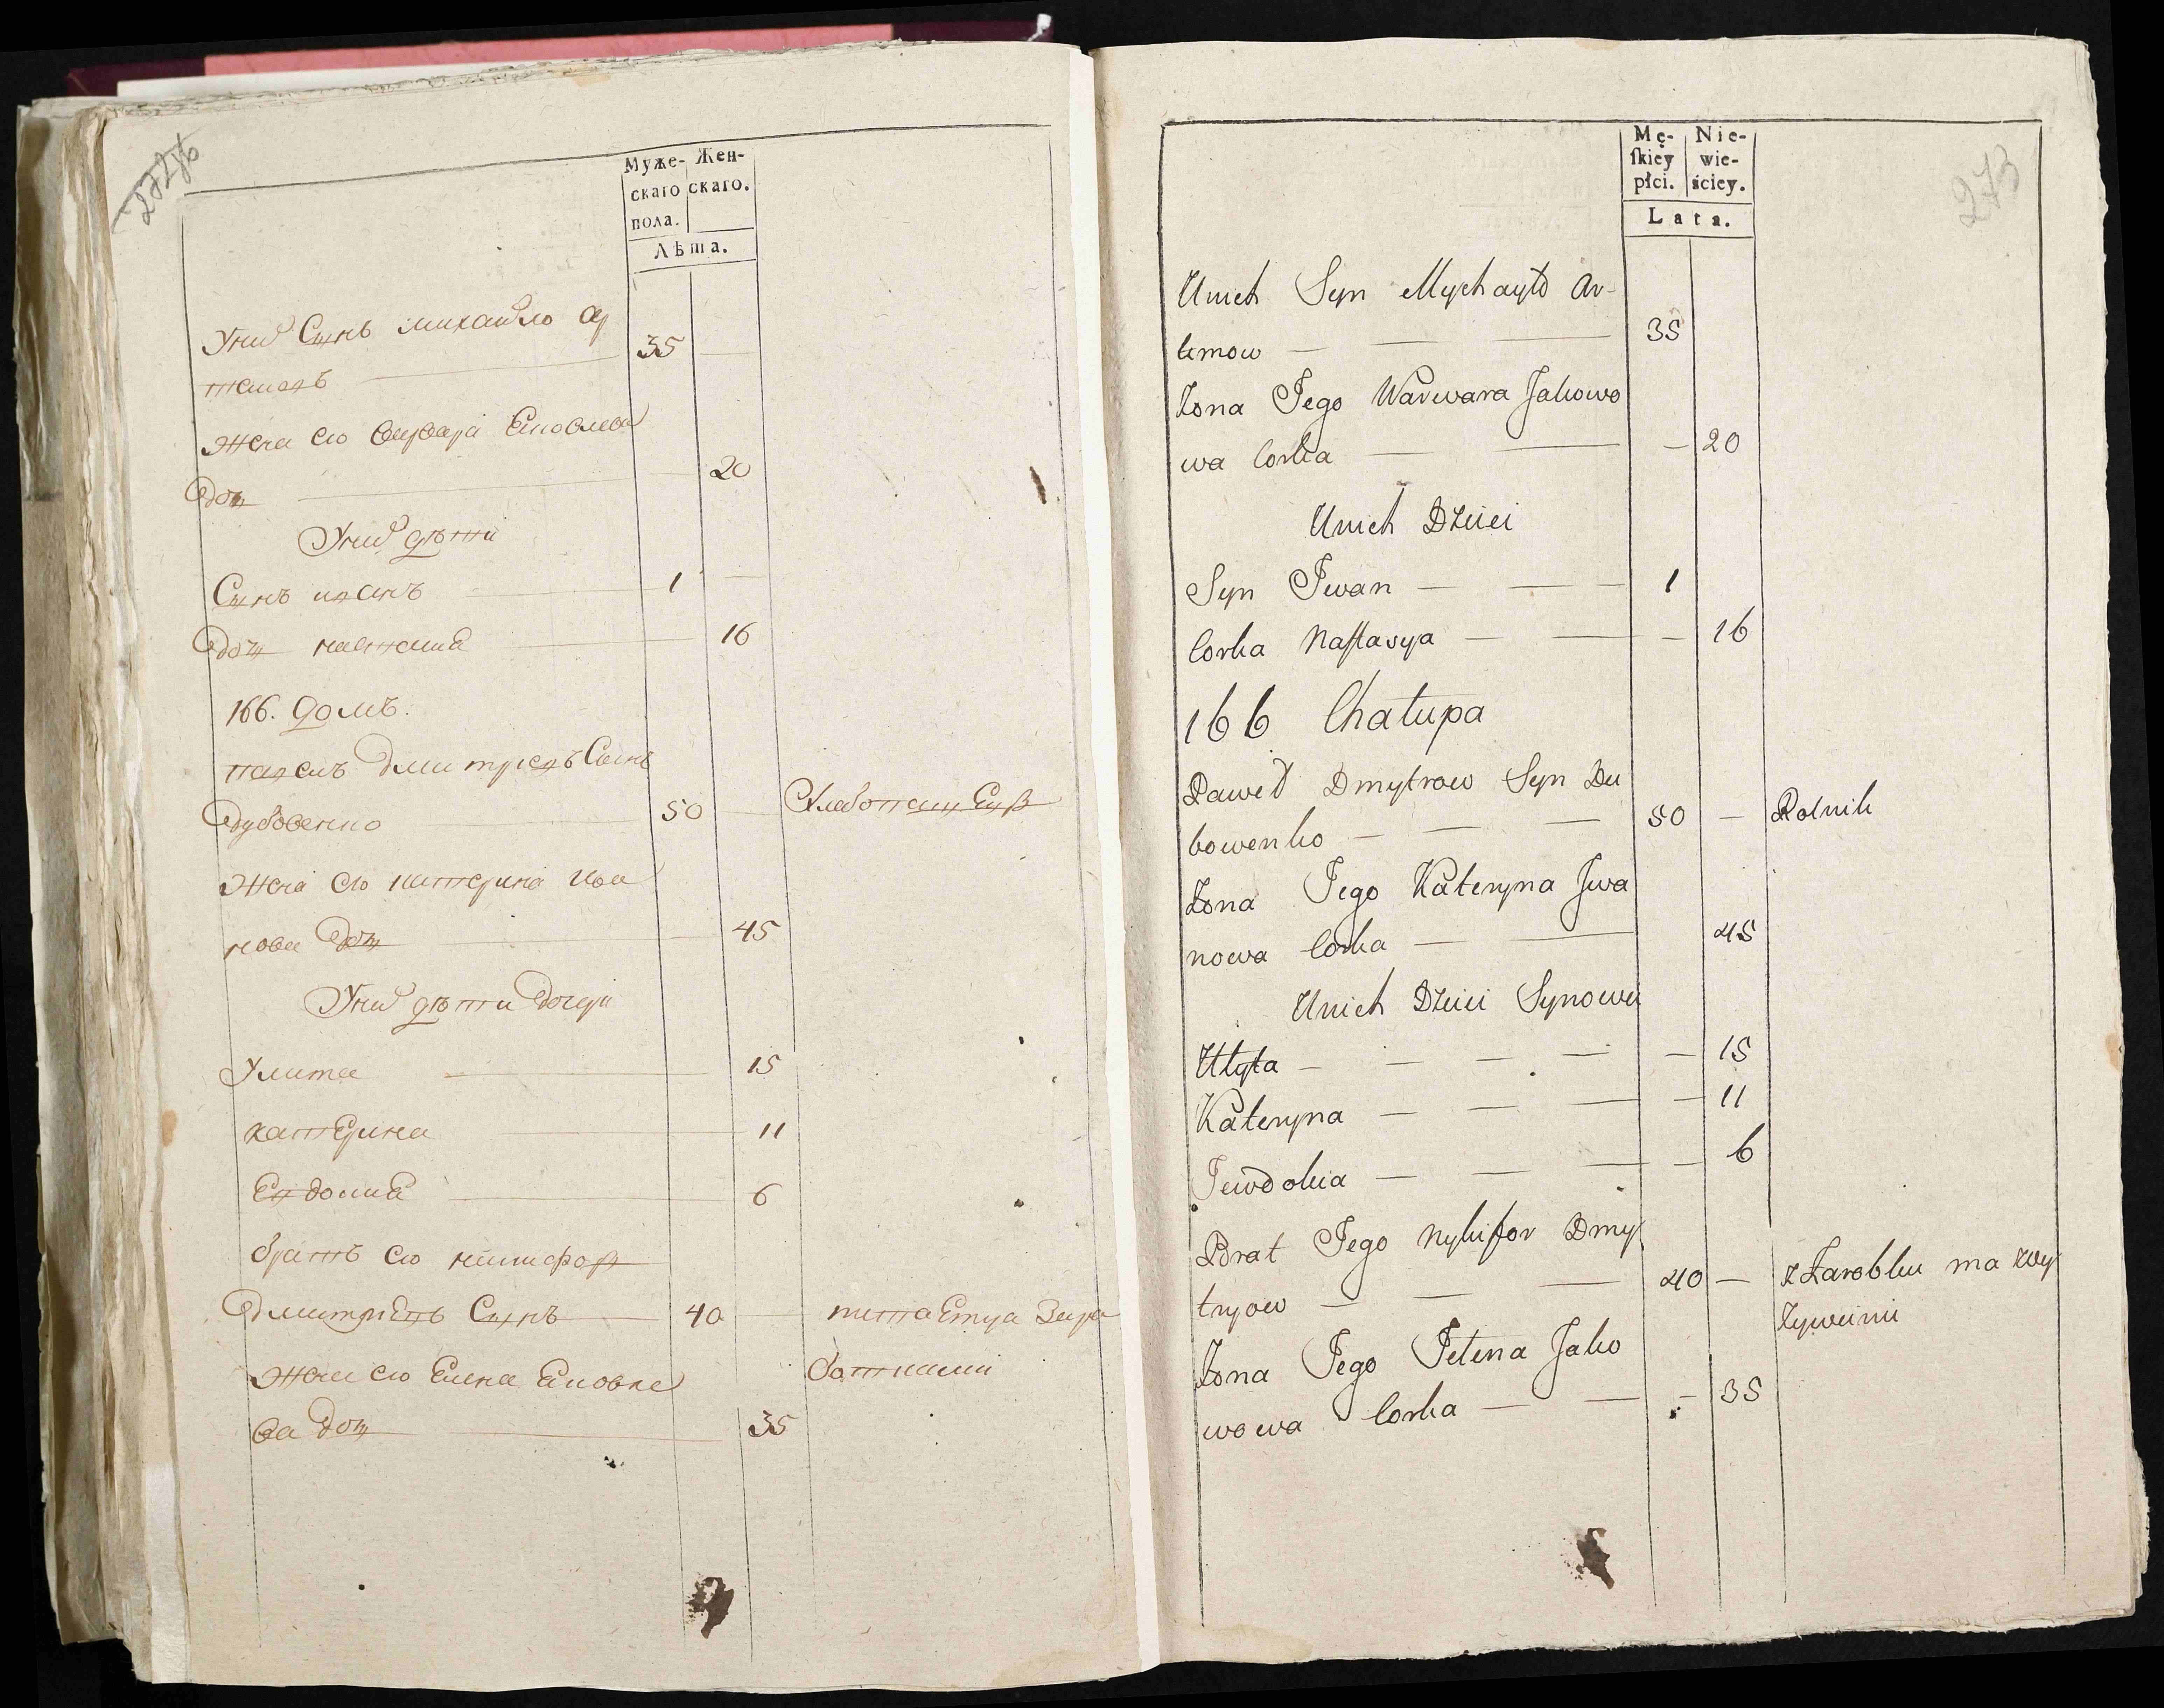 Муже- Жен-
скаго скаго.
пола.
Лѣта.
Унихъ Сынъ михайло ар
темовъ 35
жена его варвара Ековлева
доч 20
Унихъ дѣти
Сынъ иванъ 1
доч настасиа 16
166. домъ.
павелъ дмитриевъ Сынъ
дубовенко 50 Хлебопашецъ
жена его катерина ива
нова доч 45
Унихъ дѣти дочери
Улита 15
катерина 11
Евдокиа 6
братъ его никифор
дмитриевъ Сынъ 40 питаетца Зара
жена его Елена Ековле ботками
ва доч 35
273
Mę- Nie-
ſkiey wie-
płci. ściey.
Lata.
Unich Syn Mychayło Ar-
temow 35
Zona Jego Warwara Jakowo
wa Corka — 20
Unich Dzieci
Syn Iwan — 1
Corka Naſtasya — 16
166 Chatupa
Paweł Dmytrow Syn Du
bowenko — 50 — Rolnik
Zona Jego Kateryna Jwa
nowa Corka — 45
Unich Dzieci Synowie
Ulyta — 15
Kateryna — 11
Jewdokia — 6
Brat Jego Nykifor Dmy
tryow — 40 — z Zarobku ma wy
Zywienie
Zona Jego Jelena Jako
wowa Corka — 35